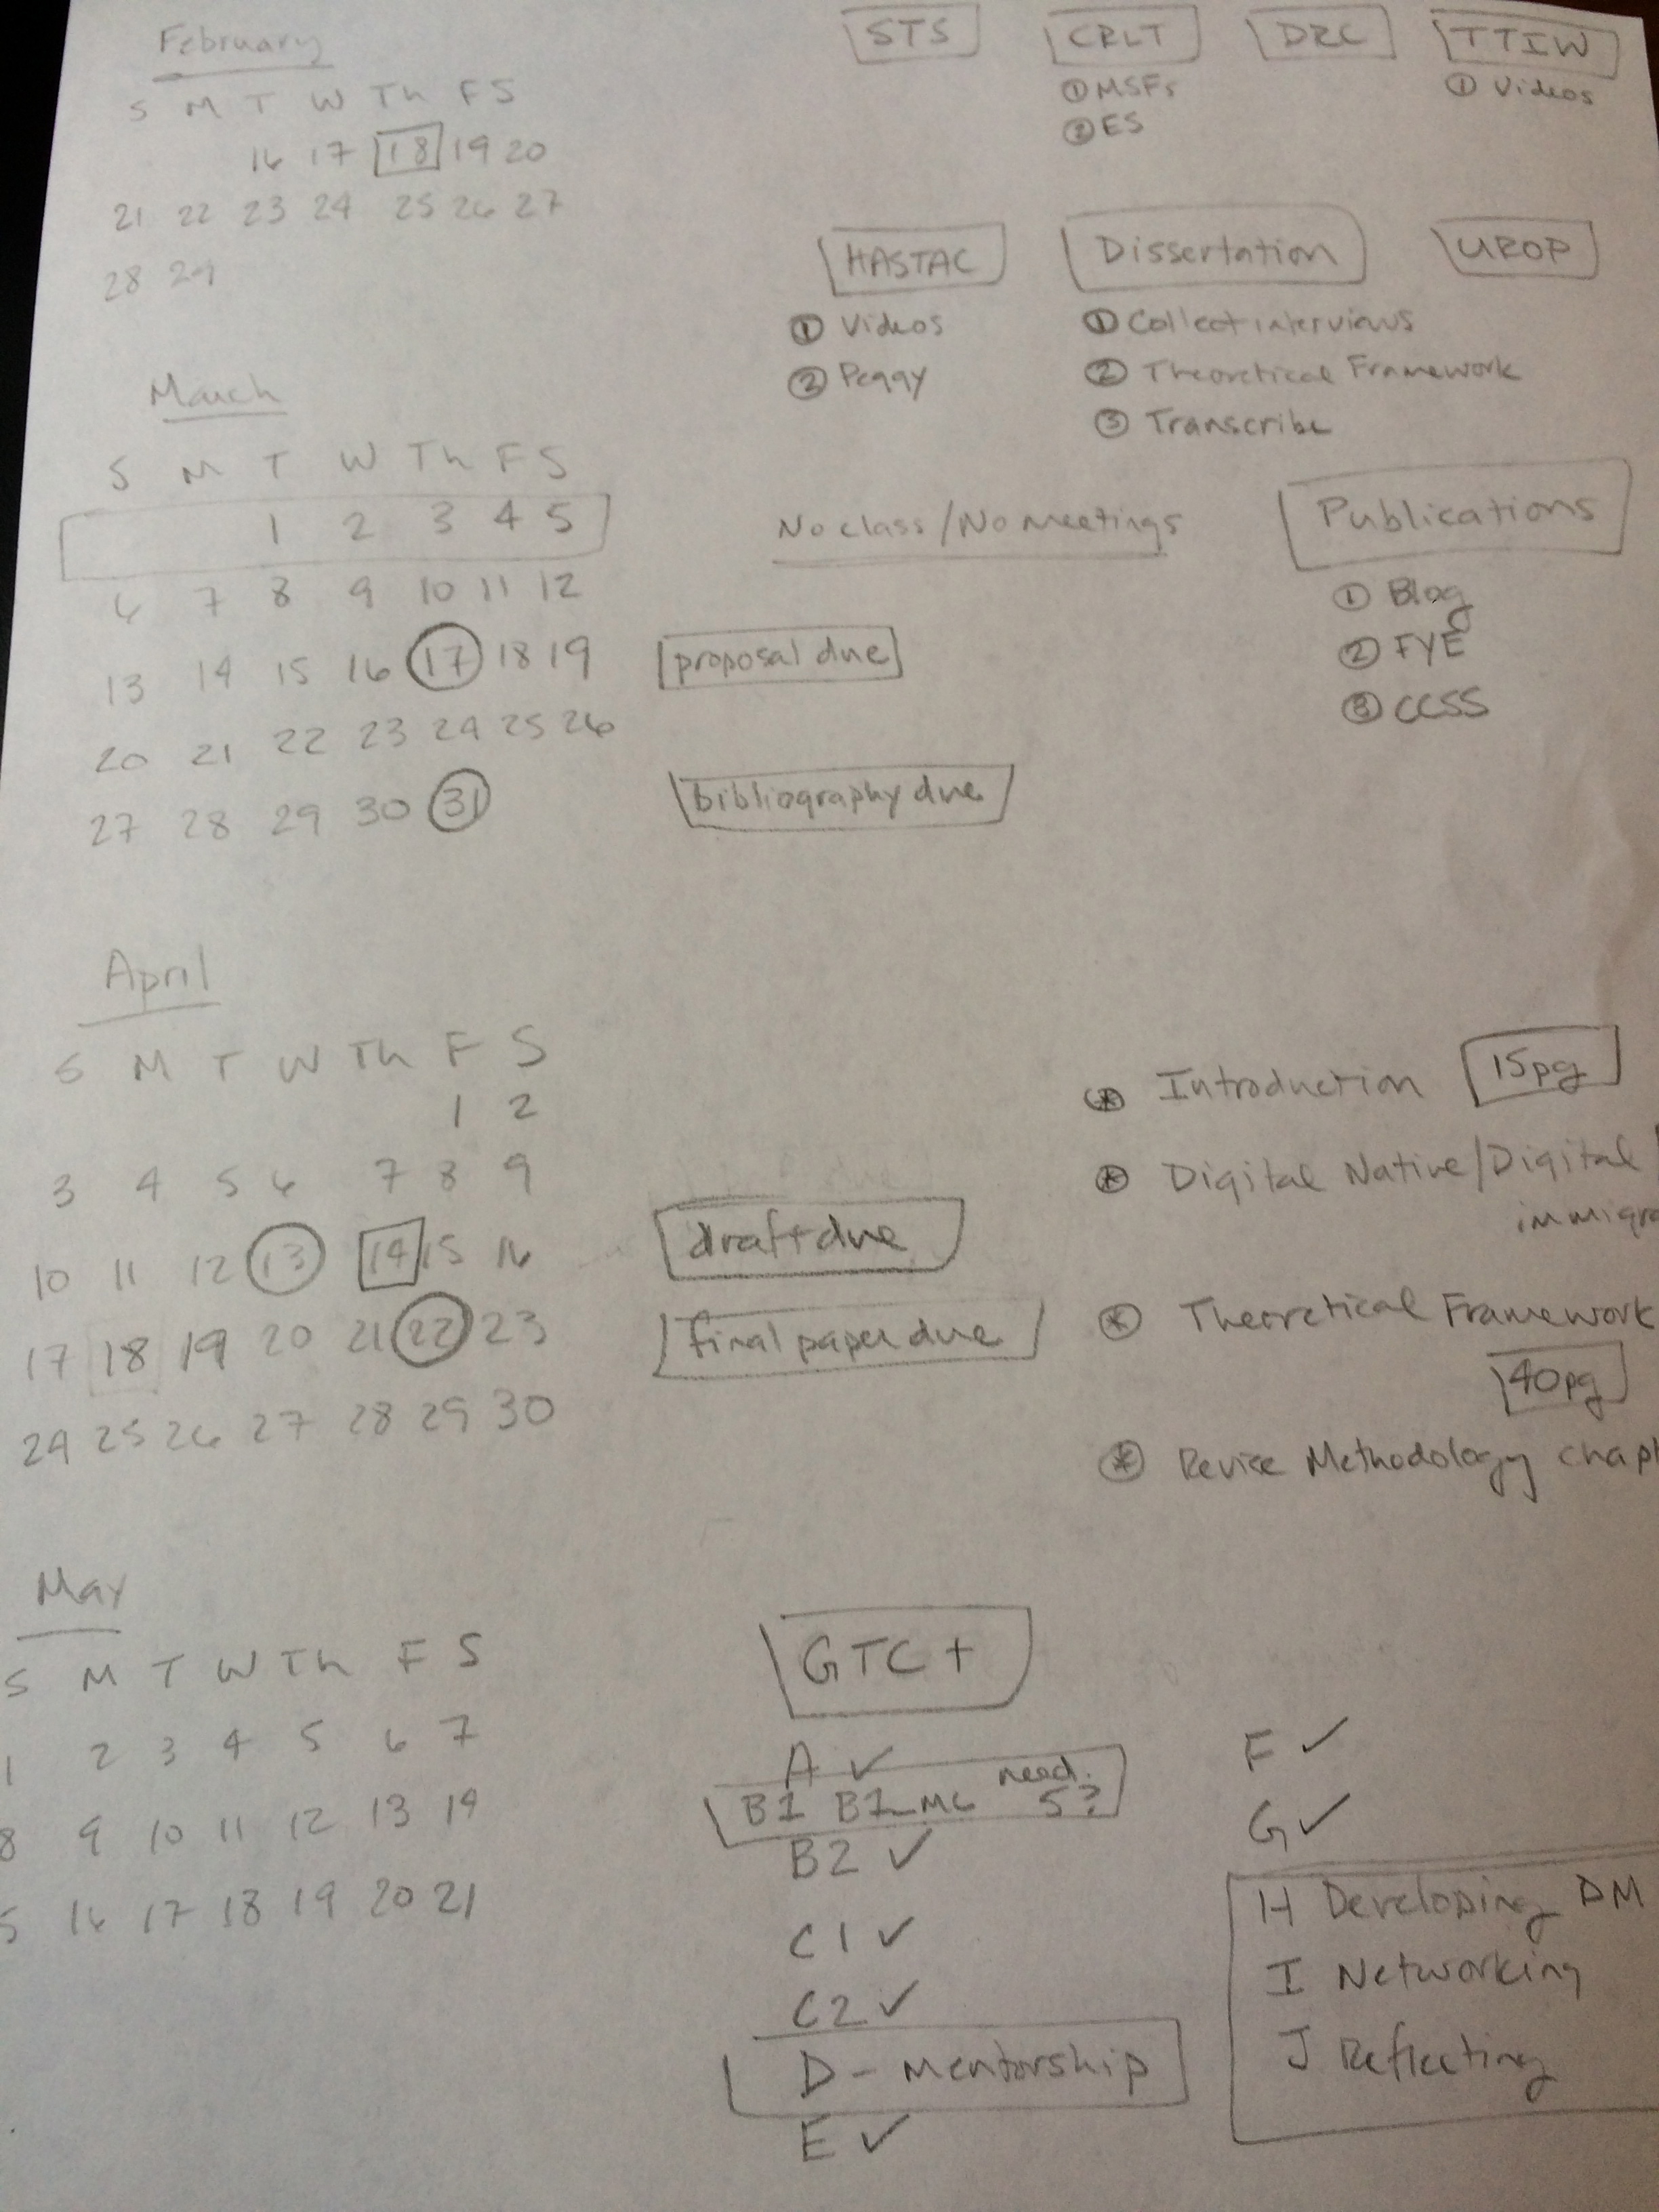 February
S M T W Th F S
16 17 18 19 20
21 22 23 24 25 26 27
28 29
STS
CRLT
① MSFs
② ES
DRC
TTIW
① Videos
HASTAC
① Videos
② Peggy
Dissertation
① Collect interviews
② Theoretical Framework
③ Transcribe
UROP
March
S M T W Th F S
1 2 3 4 5
No class/No meetings
6 7 8 9 10 11 12
13 14 15 16 17 18 19
proposal due
20 21 22 23 24 25 26
27 28 29 30 31
bibliography due
Publications
① Blog
② FYE
③ CCSS
April
S M T W Th F S
1 2
3 4 5 6 7 8 9
10 11 12 13 14 15 16
draft due
17 18 19 20 21 22 23
final paper due
24 25 26 27 28 29 30
* Introduction 15pg
* Digital Native/Digital
immigra
* Theoretical Framework
40pg
* Revise Methodology chap
May
S M T W Th F S
1 2 3 4 5 6 7
8 9 10 11 12 13 14
5 16 17 18 19 20 21
GTC+
A ✓
B1 B1 need
5?
B2 ✓
C1 ✓
C2 ✓
D - mentorship
E ✓
F ✓
G ✓
H Developing DM
I Networking
J Reflecting